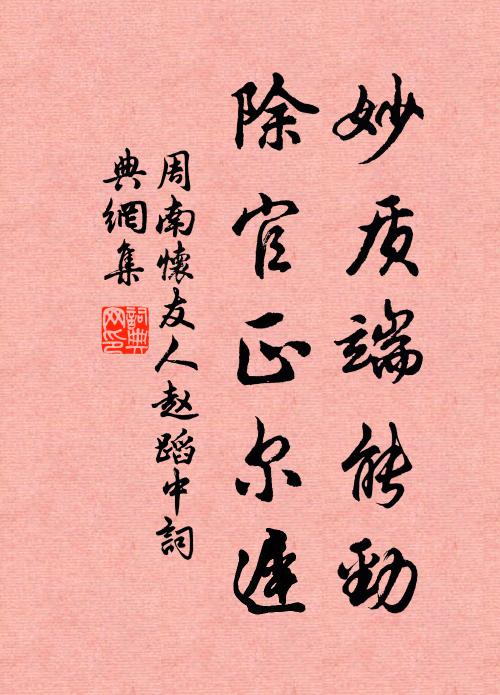 妙质端能劲
除官正尔遲
周南懷友人赵蹈中詞
典網集
詞典
网印